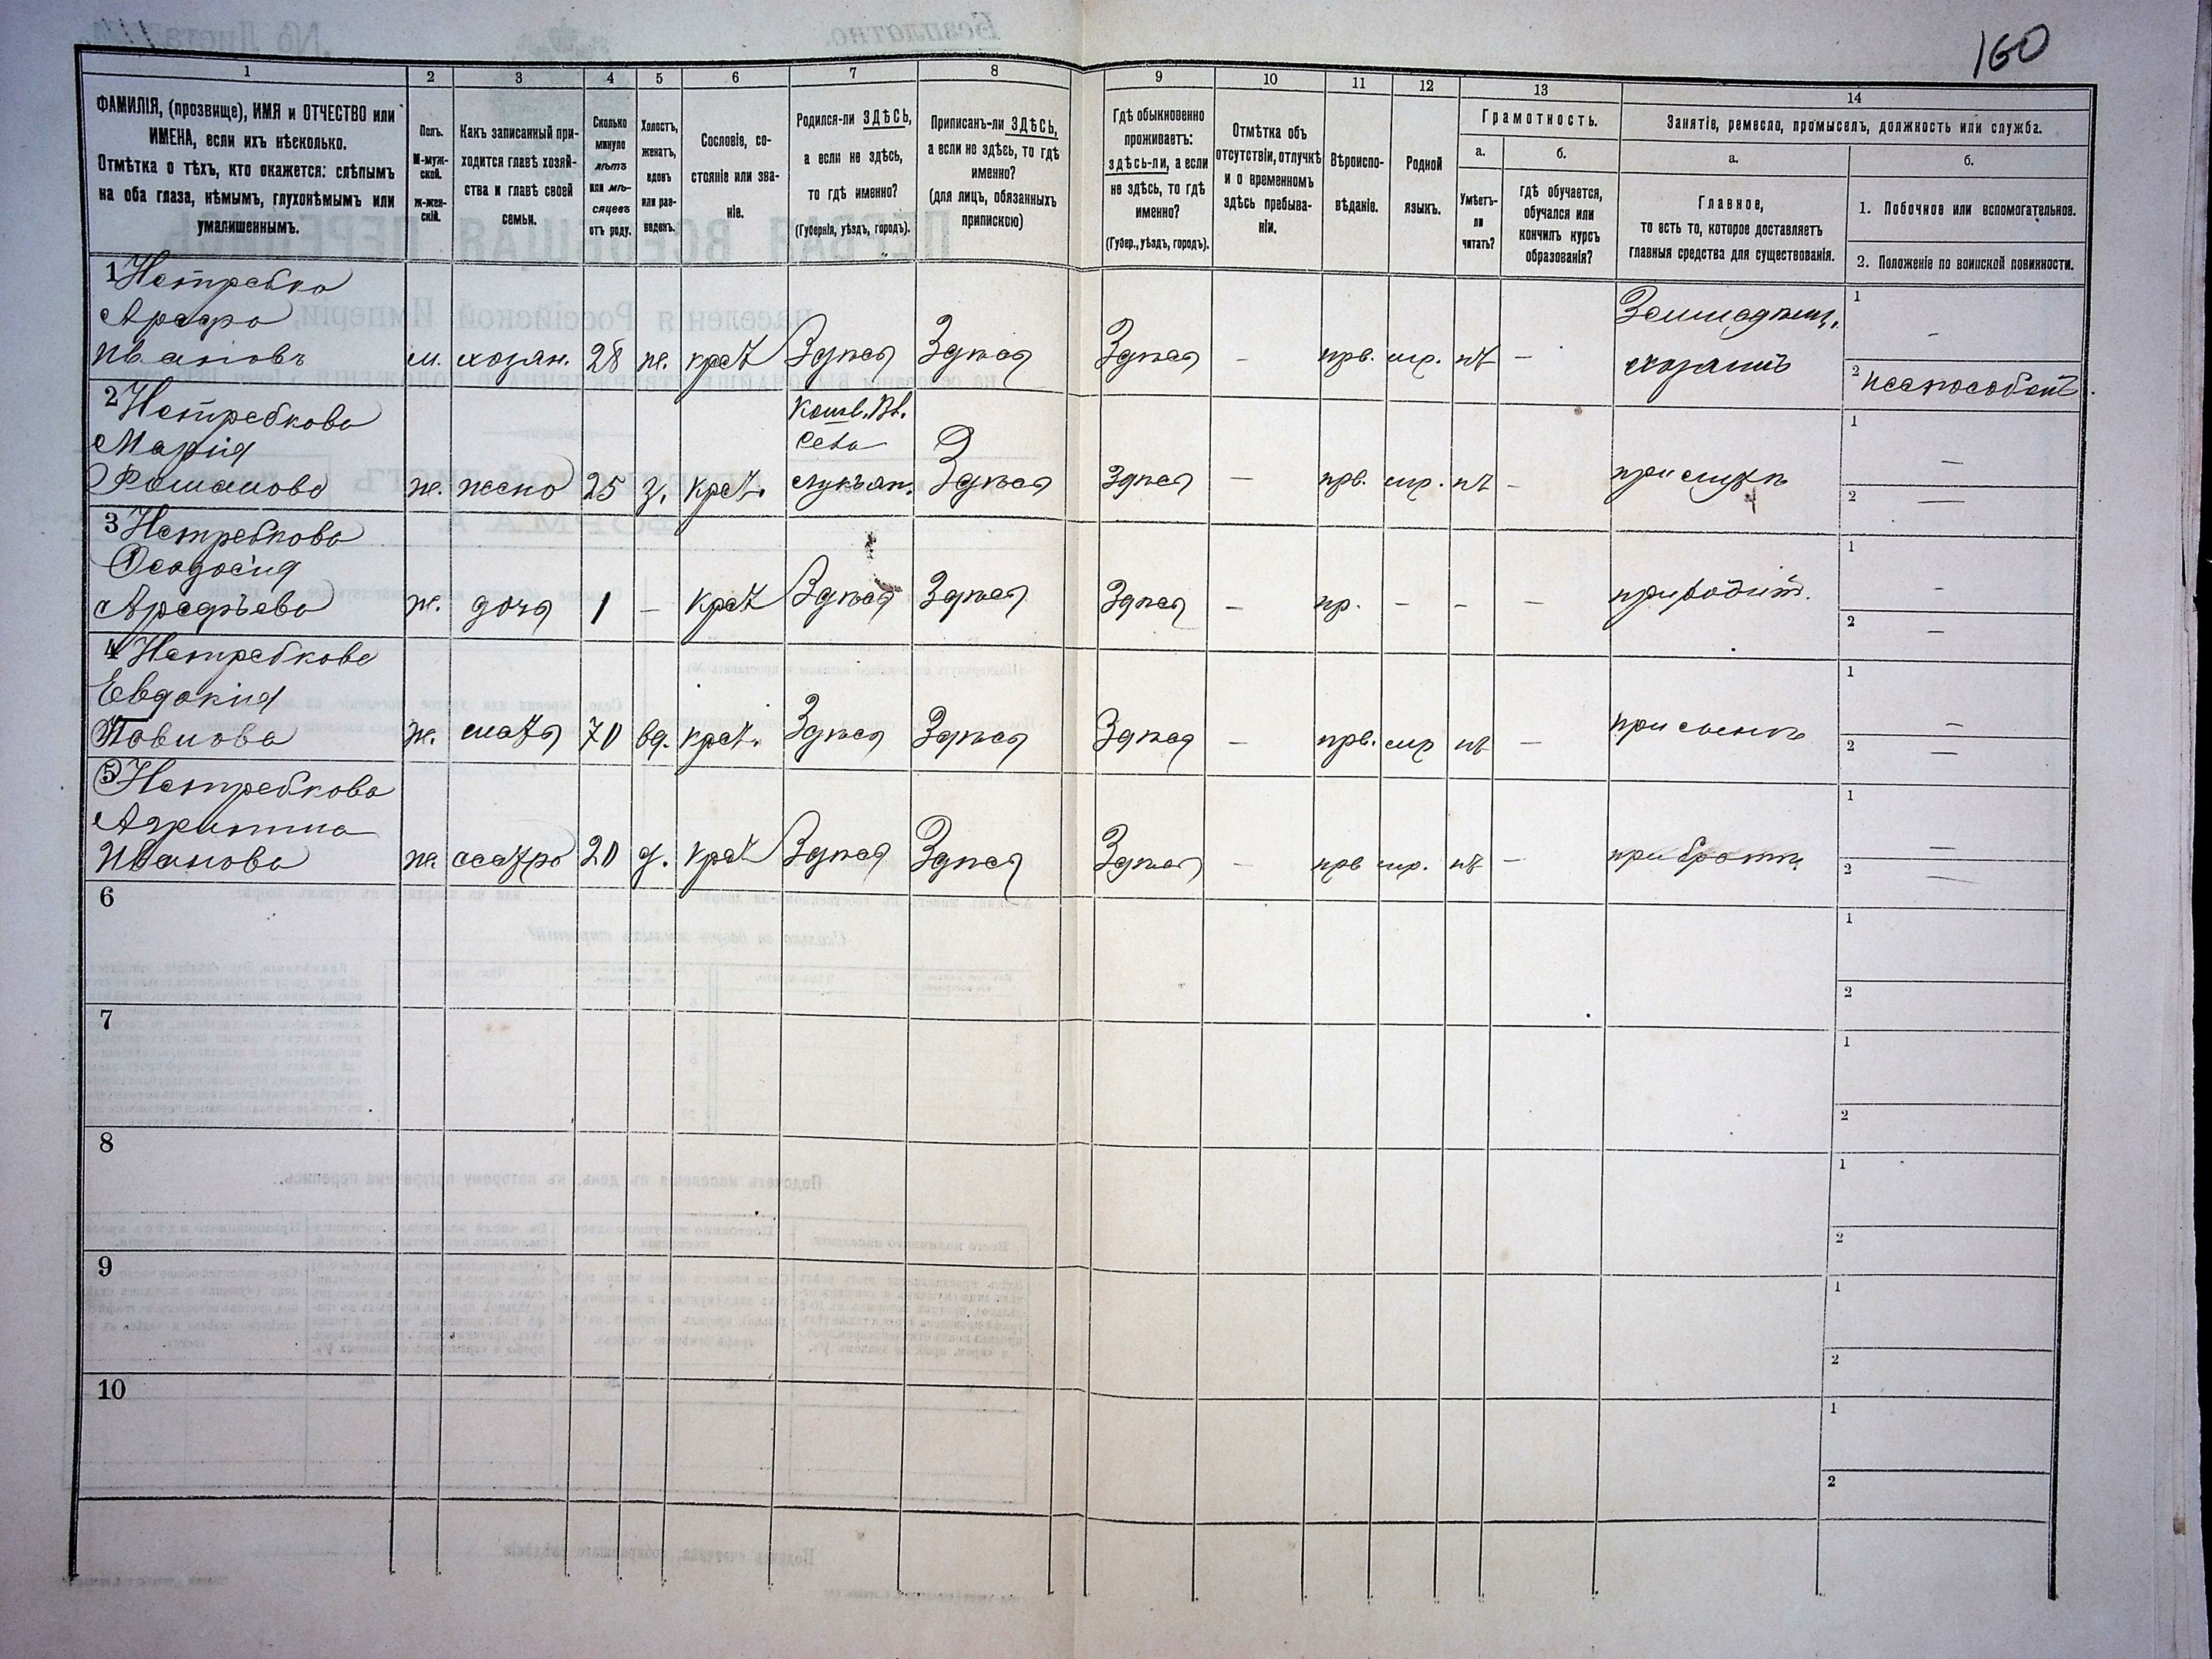 160
1
2
3
4
5
6
7
8
9
10
11
12
13
14
ФАМИЛІЯ, (прозвище), ИМЯ и ОТЧЕСТВО или
ИМЕНА, если ихъ нѣсколько.
Отмѣтка о тѣхъ, кто окажется: слѣпымъ
на оба глаза, нѣмымъ, глухонѣмымъ или
умалишеннымъ.
Полъ.
М-муж-
ской.
Ж-жен-
скій.
Какъ записанный при-
ходится главѣ хозяй-
ства и главѣ своей
семьи.
Сколько
минуло
лѣтъ
или мѣ-
сяцевъ
отъ роду.
Холостъ,
женатъ,
вдовъ
или раз-
веденъ.
Сословіе, со-
стояніе или зва-
ніе.
Родился-ли ЗДѢСЬ,
а если не здѣсь,
то гдѣ именно?
(Губернія, уѣздъ, городъ).
Приписанъ-ли ЗДѢСЬ,
а если не здѣсь, то гдѣ
именно?
(для лицъ, обязанныхъ
припискою)
Гдѣ обыкновенно
проживаетъ:
здѣсь-ли, а если
не здѣсь, то гдѣ
именно?
(Губер., уѣздъ, городъ).
Отмѣтка объ
отсутствіи, отлучкѣ
и о временномъ
здѣсь пребыва-
ніи.
Вѣроиспо-
вѣданіе.
Родной
языкъ.
Грамотность.
а.
Умѣетъ-
ли
читать?
б.
гдѣ обучается,
обучался или
кончилъ курсъ
образованія?
Занятіе, ремесло, промыселъ, должность или служба.
а.
Главное,
то есть то, которое доставляетъ
главныя средства для существованія.
б.
1. Побочное или вспомогательное.
2. Положеніе по воинской повинности.
1 Нетребко
Арефа
Ивановъ
м. хозяи. 28 ж. крест Здѣсь Здѣсь Здѣсь — прв. мр. нѣ —
хозяинъ
1 —
2 неспособенъ
2 Нетребкова
Марія
Романова
ж. жена 25 з. крест.
Села
Здѣсь Здѣсь — прв. мр. нѣ —
при мужѣ
1 —
2 —
3 Нетребкова
Феодосія
Арефьева
ж. дочь 1 — крест Здѣсь Здѣсь Здѣсь — пр. — — —
при родит.
1 —
2 —
4 Нетребкова
Евдокія
Павлова
ж. мать 70 вд. крест. Здѣсь Здѣсь Здѣсь — прв. мр нѣ —
при сынѣ
1 —
2 —
5 Нетребкова
Агрипина
Иванова
ж. сестра 20 д. крест Здѣсь Здѣсь Здѣсь — прв мр. нѣ —
при братѣ
1 —
2 —
6
1
2
7
1
2
8
1
2
9
1
2
10
1
2